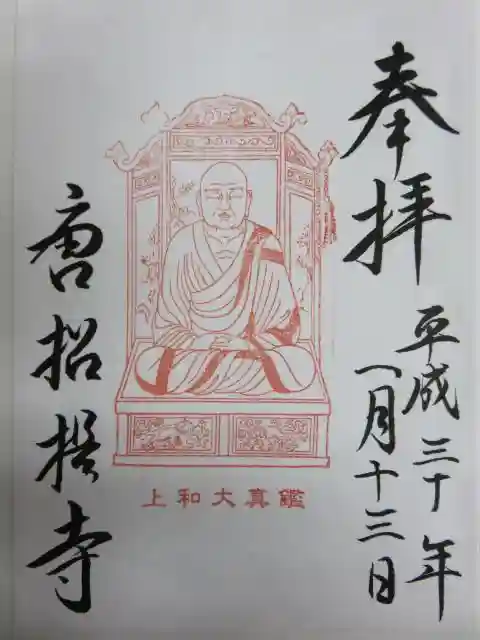 奉拝
平成三十年
一月十三日
上和大真鑑
唐招提寺